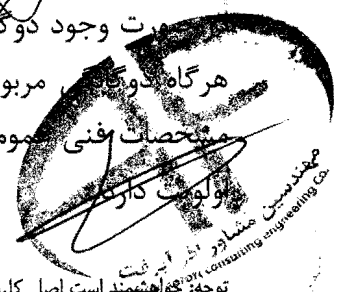 صورت وجود دوگ
هرگاه دوگانگی مربو
مشخصات فنی عموم
اولویت دارد.
مهندسین مشاور
consulting engineering Co.
توجه: خواهشمند است اصل کلی